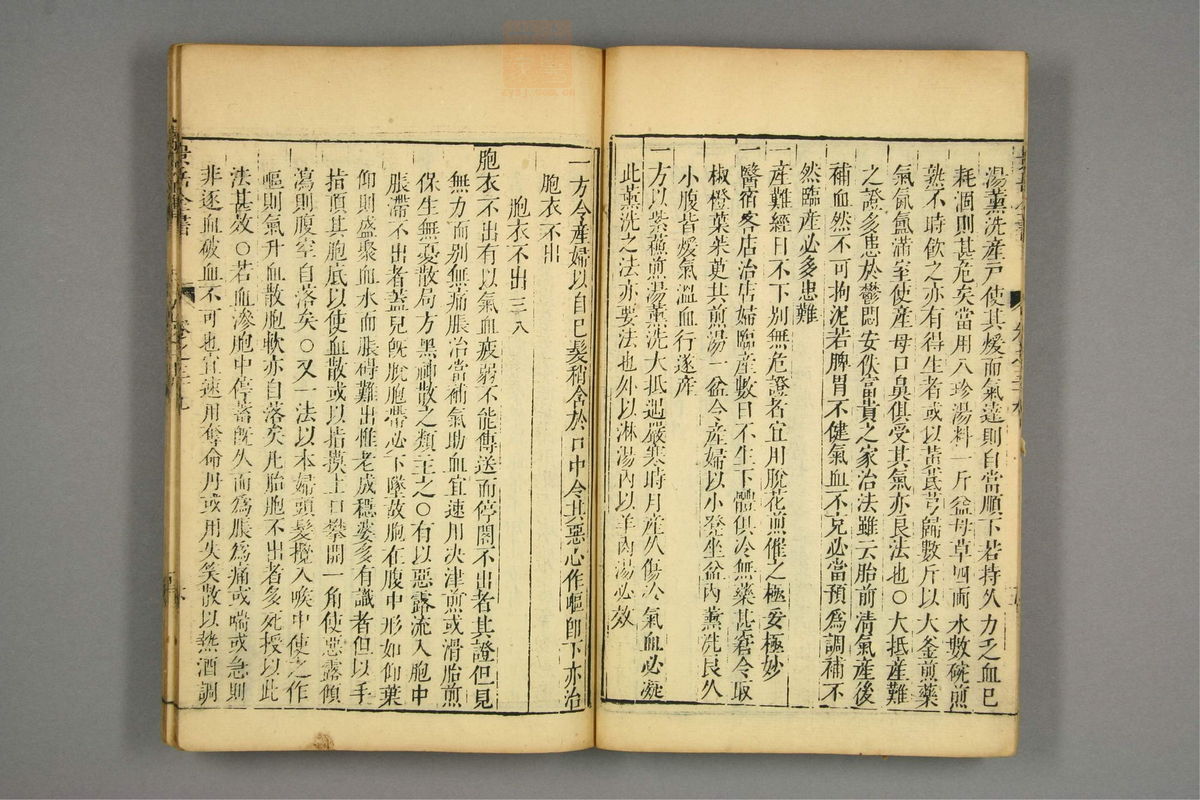 湯薰洗產戸使其煖而氣達則自當順下若持久力乏血已
耗涸則甚危矣當用八珍湯料一斤益母草四両水數碗煎
熟不時飲之亦有得生者或以黃芪芎歸數斤以大釜煎藥
氣氤氳滿室使產母口鼻俱受其氣亦良法也〇大抵產難
之證多患於鬱悶安佚富貴之家治法雖云胎前清氣產後
補血然不可拘泥若脾胃不健氣血不充必當預為調補不
然臨產必多患難
一產難經日不下別無危證者宜用脫花煎催之極妥極妙
一醫宿客店治店婦臨產數日不生下體俱冷無藥甚窘令取
椒橙葉茱萸共煎湯一盆令產婦以小凳坐盆內薰洗良久
小腹皆煖氣溫血行遂產
一方以紫蘓煎湯薰洗大抵遇嚴寒時月產久傷冷氣血必凝
此薰洗之法亦要法也外以淋湯內以羊肉湯必效
一方令產婦以自巳髮稍含於口中令其惡心作嘔即下亦治
胞衣不出
胞衣不出三八
胞衣不出有以氣血疲弱不能傳送而停閣不出者其證但見
無力而別無痛脹治當補氣助血宜速用決津煎或滑胎煎
保生無憂散局方黑神散之類主之〇有以惡露流入胞中
脹滯不出者蓋兒既脫胞帶必下墜故胞在腹中形如仰葉
仰則盛聚血水而脹碍難出惟老成穩婆多有識者但以手
指頂其胞底以使血散或以指摸上口攀開一角使惡露傾
瀉則腹空自落矣〇又一法以本婦頭髮攪入喉中使之作
嘔則氣升血散胞軟亦自落矣凡胎胞不出者多死授以此
法甚效〇若血滲胞中停蓄既久而為脹為痛或喘或急則
非逐血破血不可也宜速用奪命丹或用失笑散以熱酒調